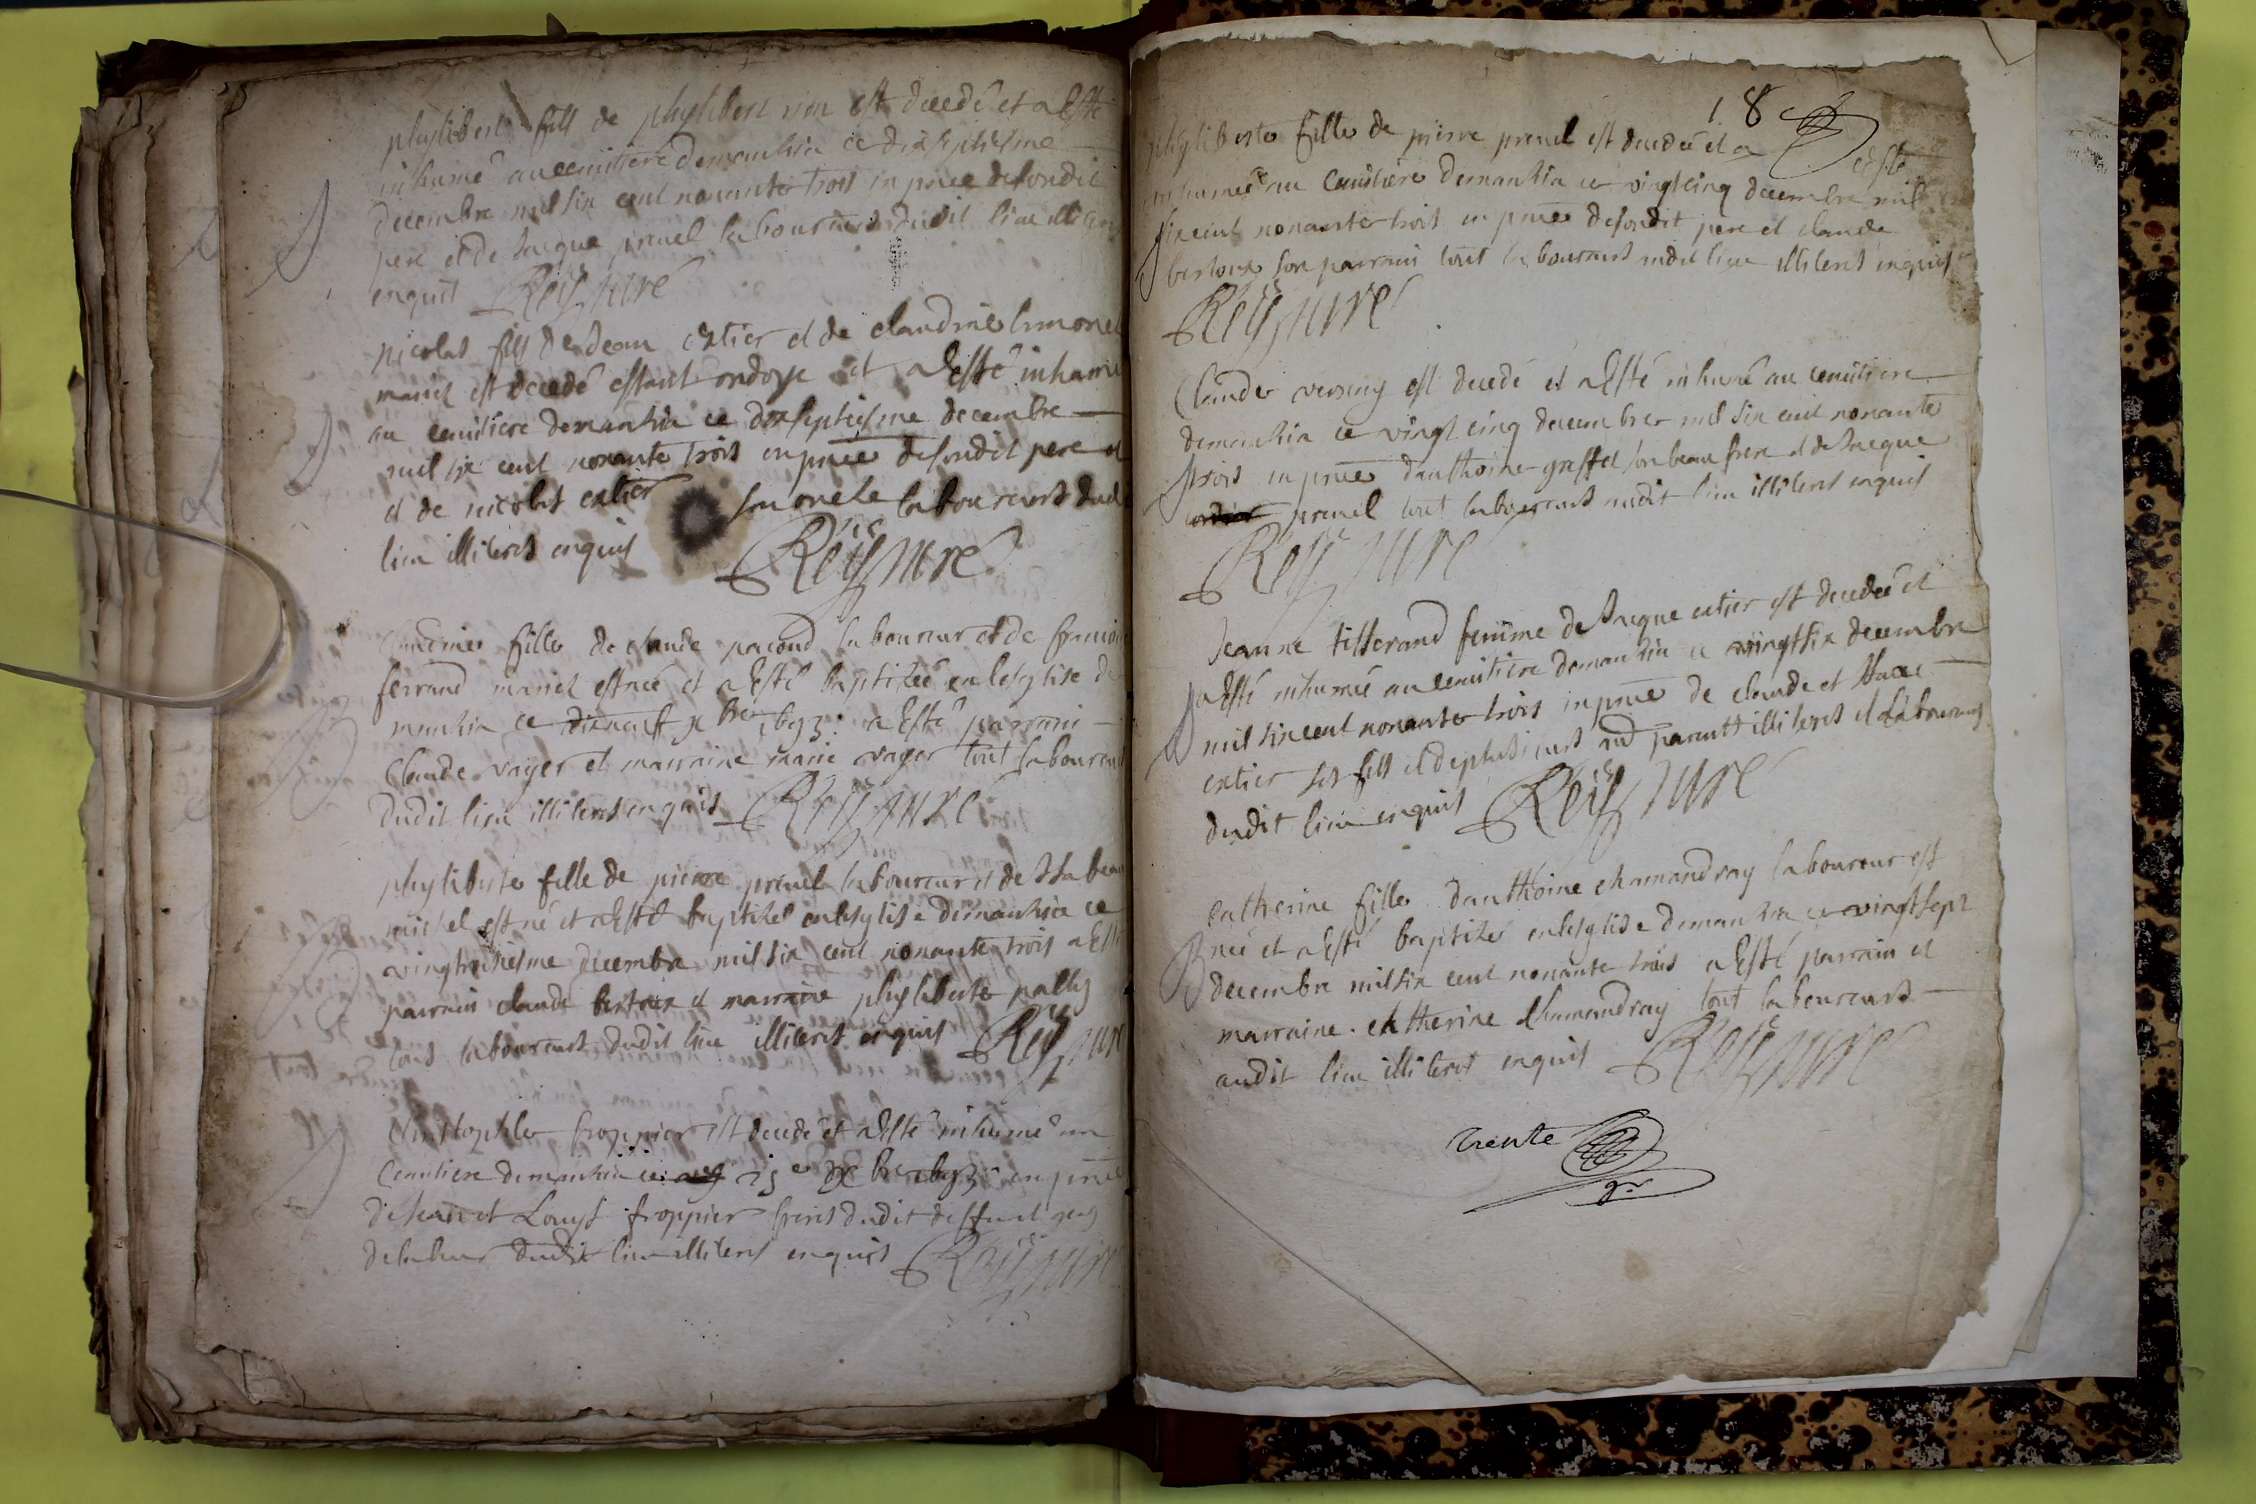 phylibert fils de phylibert rion est decedé et a Esté
inhumé au cemitiere demanhia ce dixseptiesme
decembre mil six cent nonante trois en pñce desondit
pere et de Jacque preuel laboureurs dudit lieu illiters
enquis Reÿ curé
nicolas fils de Jean extier et de claudine limonel
mariez est decedé estant ondoye et a Esté inhumé
au cemitiere demanhia ce dixseptiesme decembre
mil six cent nonante trois en pñce desondit pere et
et de nicolas extier son oncle laboureurs dud
lieu illiters enquis Reÿ curé
fille de claude pacoud laboureur et de
ferrand mariez est née et a Esté baptizée en lesglise de
manhia ce dixneuf xbre 1693. a Esté parrain
Claude vayer et marraine marie vayer tout laboureurs
dudit lieu illiters enquis Reÿ curé
phyliberte fille de pierre preuel laboureur et de Isabeau
michel est né et a Esté baptizé en lesglise demanhia ce
vingtroisiesme decembre mil six cent nonante trois a Esté
parrain claude bertoux et marraine phyliberte
tous laboureurs dudit lieu illiters enquis Reÿ curé
Christophle froppier est decedé et a Esté inhumé au
Cemitiere demanhia ce xbre 1693 en pñce
de Jean et Louys froppier freres dudit deffunct gens
de labeur dudit lieu illiters enquis Reÿ curé
18
phyliberte fille de pierre preuel est decedée et a
esté
inhumée au cemitiere demanhia ce vingt cinq decembre mil
six cent nonante trois en pñce desondit pere et claude
bertoux son parrain tout laboureurs audit lieu illiters enquis
Reÿ curé
Claude est decedé et a Esté inhumé au cemitiere
demanhia ce vingt cinq decembre mil six cent nonante
trois en pñce danthoine greffet son beau frere et de Jacque
preuel tout laboureurs audit lieu illiters enquis
Reÿ curé
Jeanne tisserand femme de Jacque extier est decedée et
a Esté inhumée au cemitiere demanhia ce vingt six decembre
mil six cent nonante trois en pñce de claude et
extier ses fils et de plusieurs parents illiters et laboureurs
dudit lieu enquis Reÿ curé
catherine fille danthoine chamandray laboureur est
née et a Esté baptizé en lesglise demanhia ce vingt sept
decembre mil six cent nonante trois a Esté parrain et
marraine catherine chamandray tout laboureurs
audit lieu illiters enquis Reÿ curé
trente